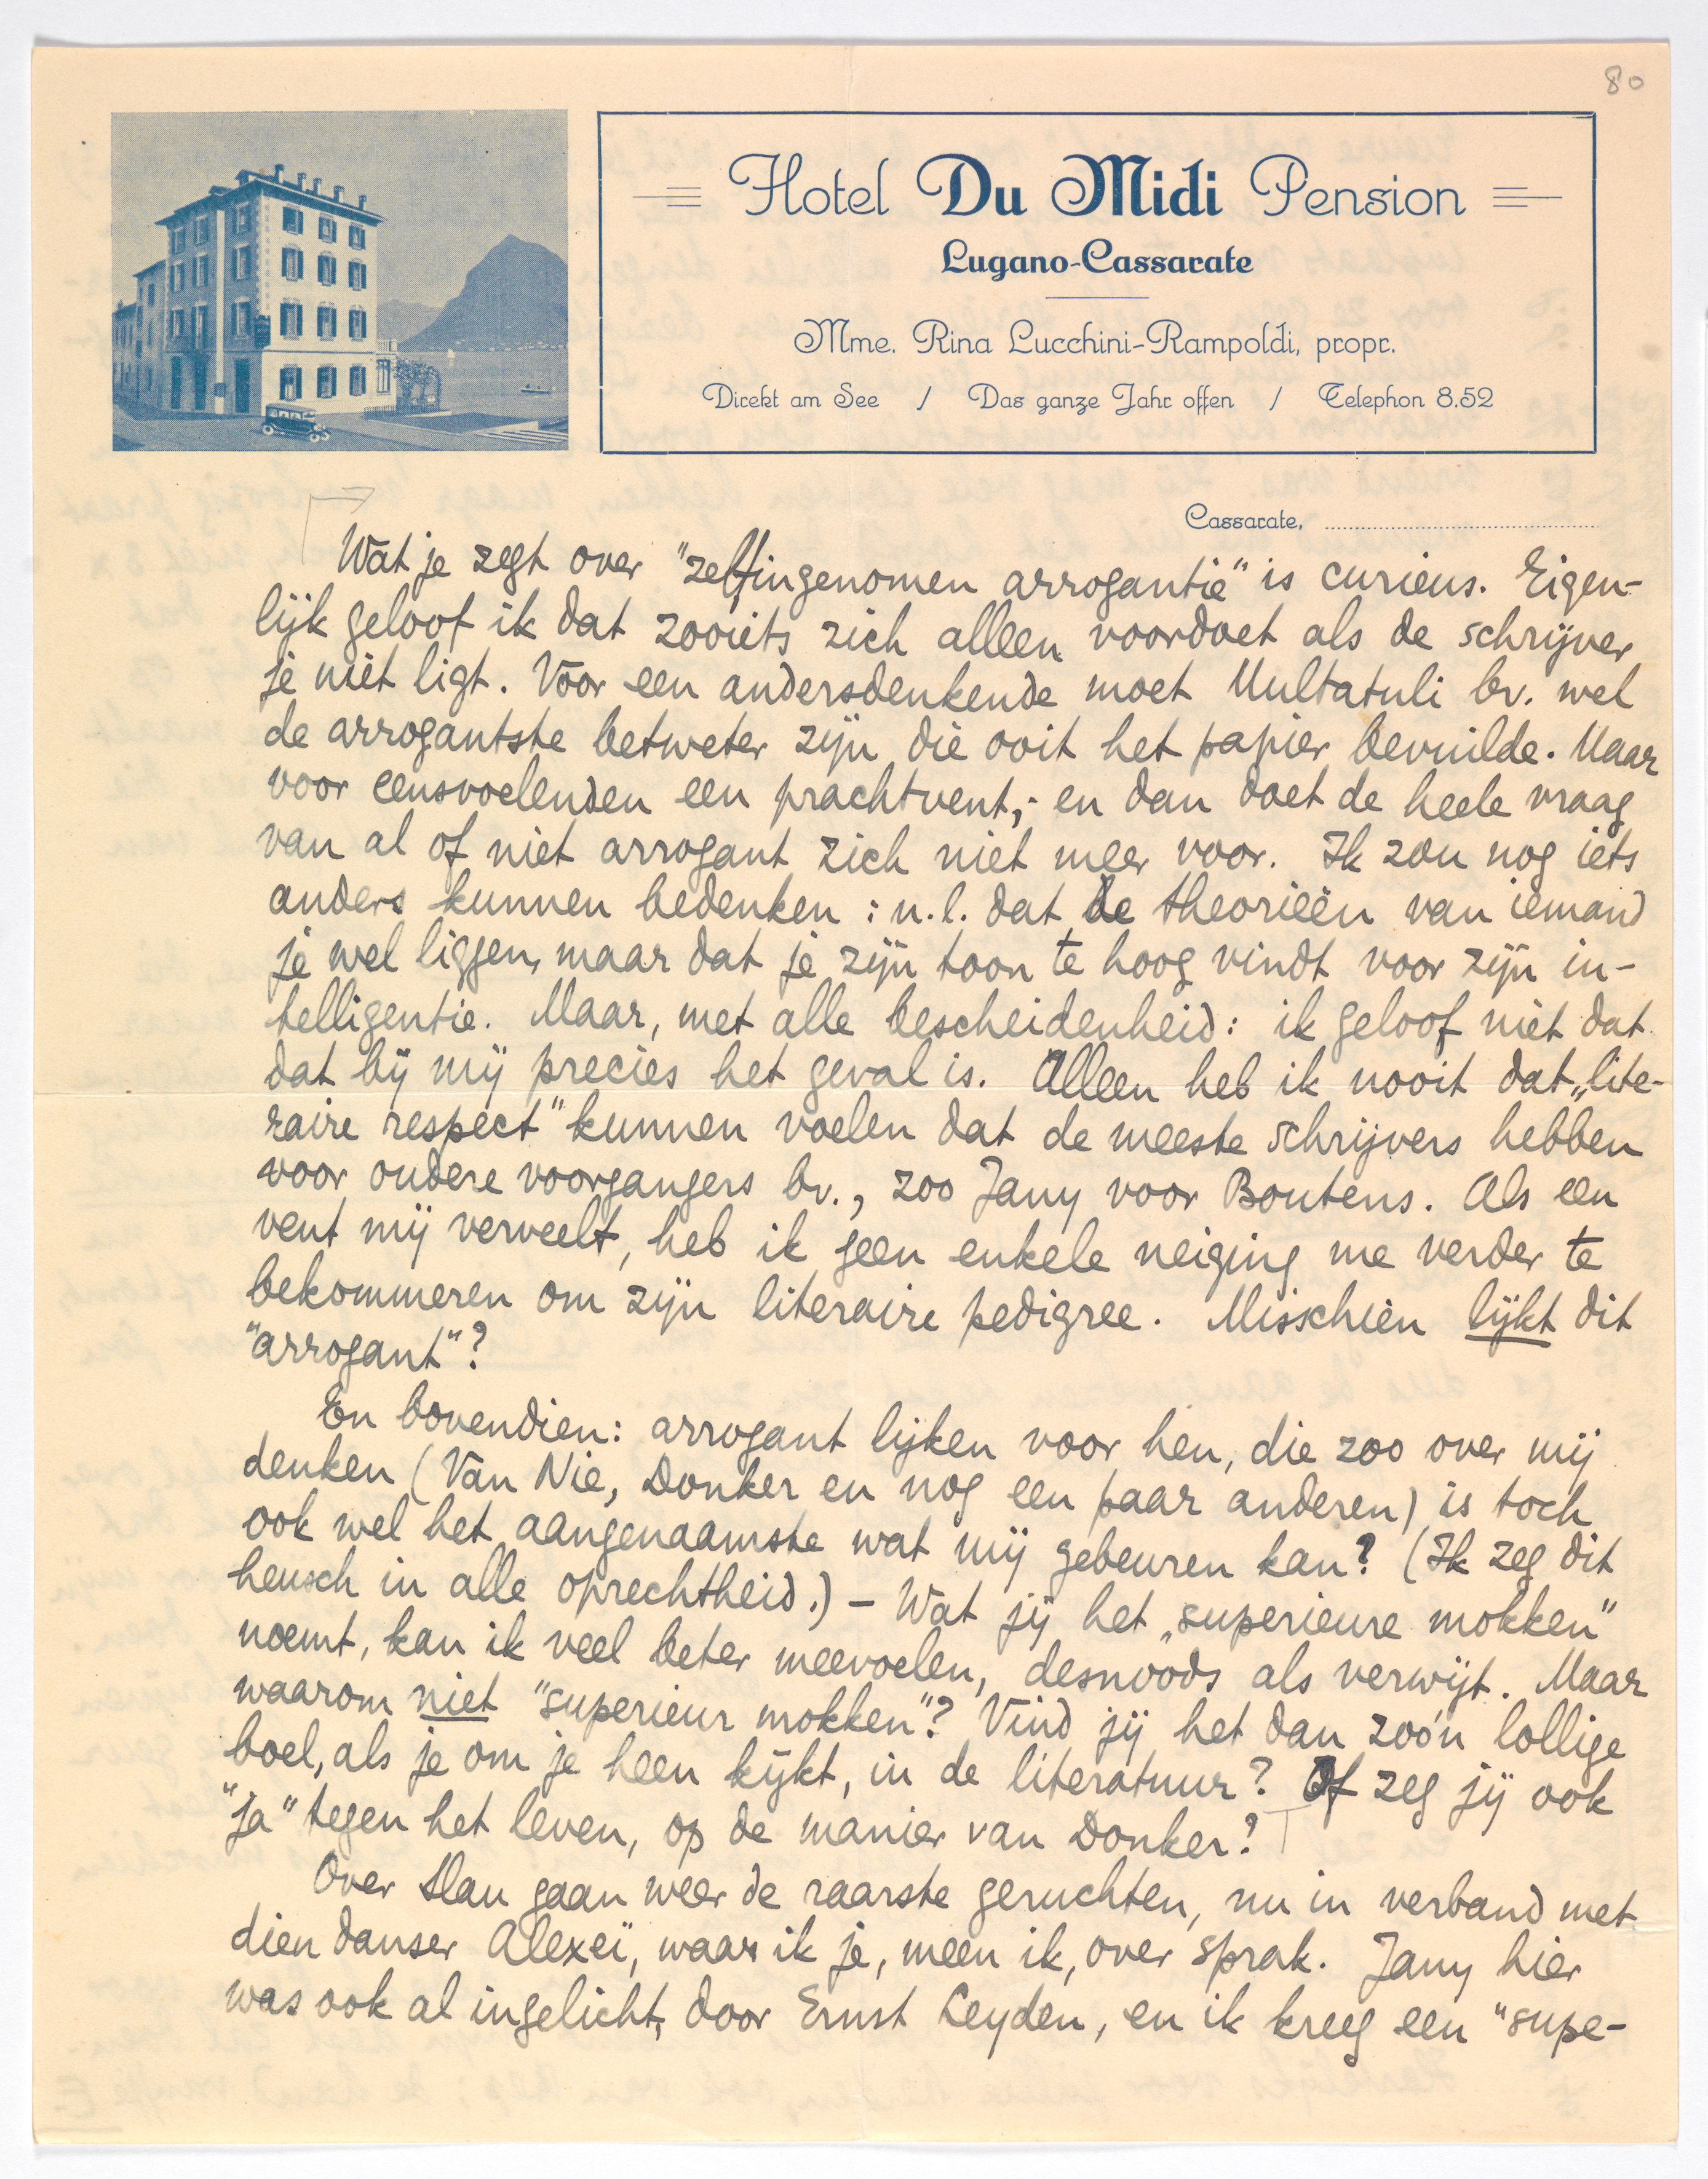 80
Hotel Du Midi Pension
Lugano-Cassarate
Mme. Rina Lucchini-Rampoldi, propr.
Direkt am See / Das ganze Jahr offen / Telephon 8.52
Cassarate,
Wat je zegt over "zelfingenomen arrogantie" is curieus. Eigen-
lijk geloof ik dat zooiets zich alleen voordoet als de schrijver
je niet ligt. Voor een andersdenkende moet Multatuli bv. wel
de arrogantste betweter zijn die ooit het papier bevuilde. Maar
voor eensvoelenden een prachtvent; - en dan doet de heele vraag
van al of niet arrogant zich niet meer voor. Ik zou nog iets
anders kunnen bedenken: n.l. dat de theorieën van iemand
je wel liggen, maar dat je zijn toon te hoog vindt voor zijn in-
telligentie. Maar, met alle bescheidenheid: ik geloof niet dat
dat bij mij precies het geval is. Alleen heb ik nooit dat „lite-
raire respect" kunnen voelen dat de meeste schrijvers hebben
voor oudere voorgangers bv., zoo Jany voor Boutens. Als een
vent mij verveelt, heb ik geen enkele neiging me verder te
bekommeren om zijn literaire pedigree. Misschien lijkt dit
"arrogant"?
En bovendien: arrogant lijken voor hen, die zoo over mij
denken (Van Nie, Donker en nog een paar anderen) is toch
ook wel het aangenaamste wat mij gebeuren kan? (Ik zeg dit
heusch in alle oprechtheid.) - Wat jij het „superieure mokken"
noemt, kan ik veel beter meevoelen, desnoods als verwijt. Maar
waarom niet "superieur mokken"? Vind jij het dan zoo'n lollige
boel, als je om je heen kijkt, in de literatuur? Of zeg jij ook
"ja" tegen het leven, op de manier van Donker?
Over Slau gaan weer de raarste geruchten, nu in verband met
dien danser Alexeï, waar ik je, meen ik, over sprak. Jany hier
was ook al ingelicht, door Ernst Leyden, en ik kreeg een "supe-